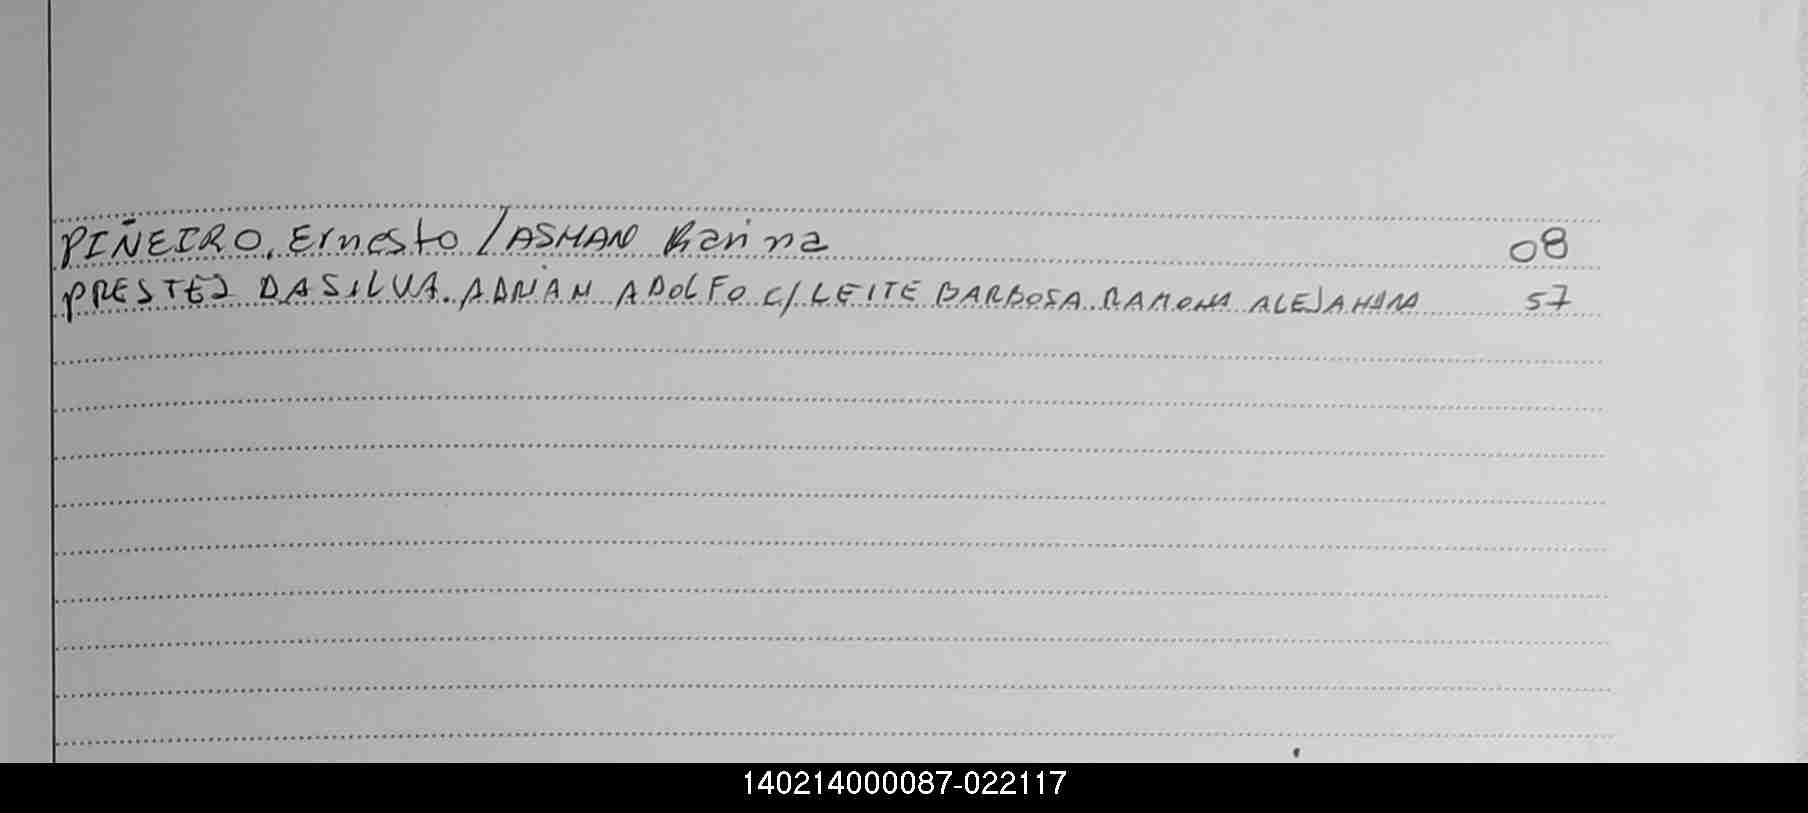 PIÑEIRO, Ernesto / ASMAN Karina 08
PRESTES DASILVA. ADRIAN ADOLFO C/ LEITE BARBOSA RAMONA 57
140214000087-022117